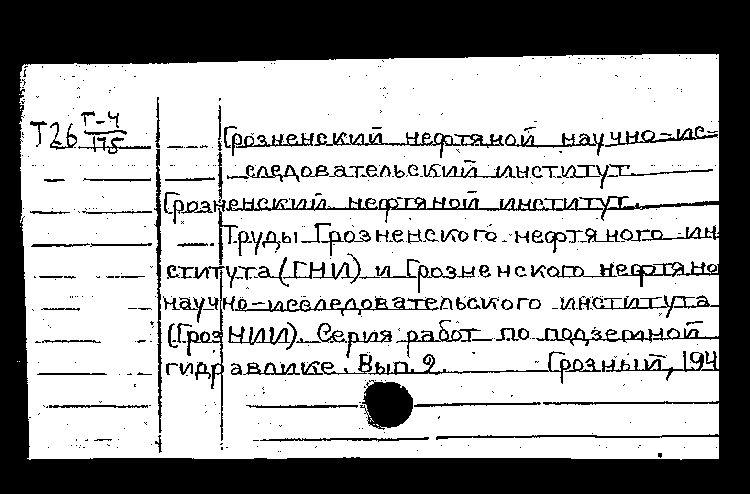 Т26 Г-4
175
Грозненский нефтяной научно-ис-
следовательский институт.
Грозненский нефтяной институт.
Труды Грозненского нефтяного ин
ститута (ГНИ) и Грозненского нефтяно
научно-исследовательского института
(ГрозНИИ). Серия работ по подземной
гидравлике. Вып. 2. Грозный, 194